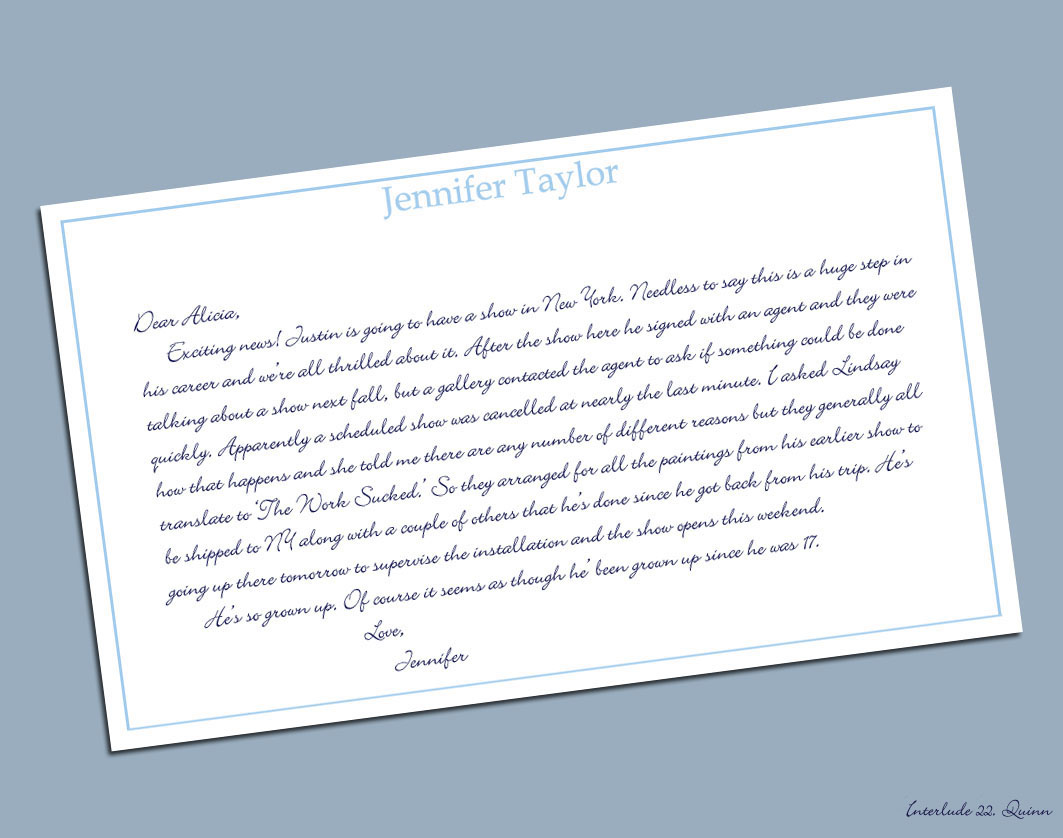 Jennifer Taylor
Dear Alicia,
Exciting news! Justin is going to have a show in New York. Needless to say this is a huge step in
his career and we're all thrilled about it. After the show here he signed with an agent and they were
talking about a show next fall, but a gallery contacted the agent to ask if something could be done
quickly. Apparently a scheduled show was cancelled at nearly the last minute. I asked Lindsay
how that happens and she told me there are any number of different reasons but they generally all
translate to 'The Work Sucked.' So they arranged for all the paintings from his earlier show to
be shipped to NY along with a couple of others that he's done since he got back from his trip. He's
going up there tomorrow to supervise the installation and the show opens this weekend.
He's so grown up. Of course it seems as though he' been grown up since he was 17.
Love,
Jennifer
Interlude 22. Quinn